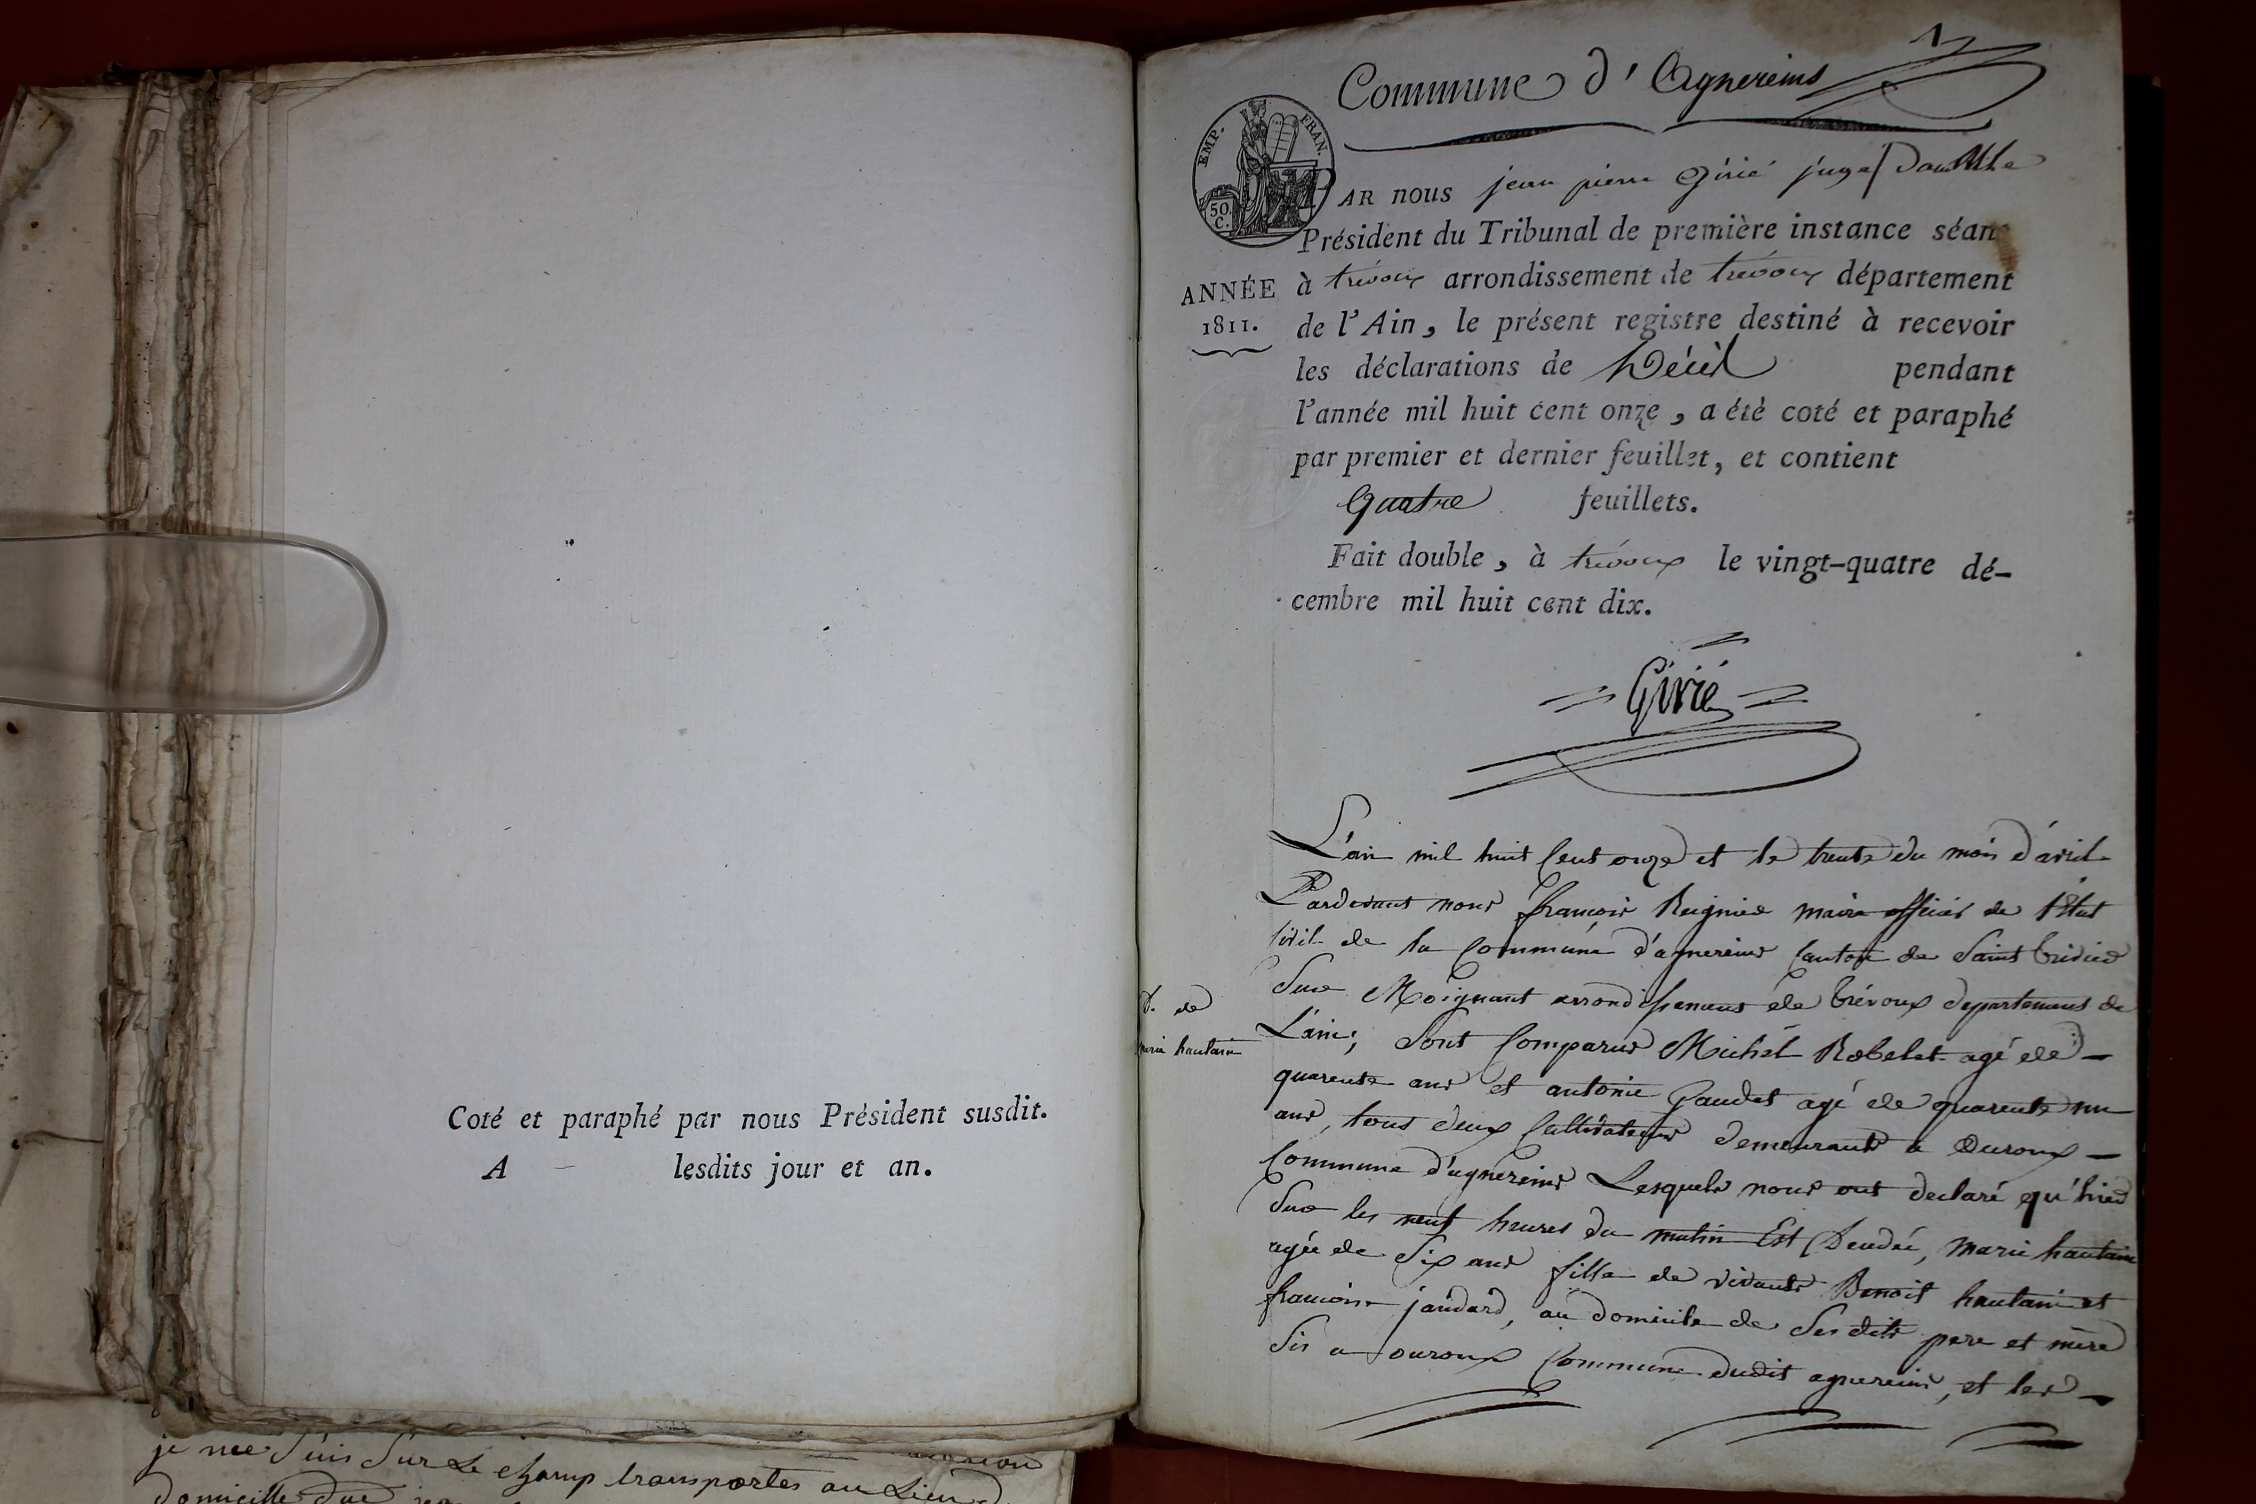 Coté et paraphé par nous Président susdit.
A lesdits jour et an.
je me suis sur le champ transportés au Lieu
domicille
1
Commune d'Agnereins
EMP. FRAN.
50 C.
PAR nous jean pierre Girié juge
Président du Tribunal de première instance séan
ANNÉE
1811.
à trévoux arrondissement de trévoux département
de l'Ain, le présent registre destiné à recevoir
les déclarations de Décès pendant
l'année mil huit cent onze, a été coté et paraphé
par premier et dernier feuillet, et contient
Quatre feuillets.
Fait double, à trévoux le vingt-quatre dé-
cembre mil huit cent dix.
Girié
L'an mil huit Cent onze et le trente du mois d'avril
Pardevant nous françois Reignier maire officier de l'État
Civil de la Commune d'agnereins Canton de Saint trivier
Sur Moignant arrondissement de trévoux departement de
L'ain; Sont Comparus Michel Robelet agé de
quarente ans et antoine Gaudet agé de quarente un
ans, tous deux Cultivateurs demeurants a Ouroux
Commune d'agnereins Lesquels nous ont declaré qu'hier
Sur les neuf heures du matin Est Décédée, marie hautain
agée de Six ans fille de vivants Benoit hautain et
francoise jandard, au domicile de Ses dits pere et mère
Sis a ouroux Commune dudit agnereins, et les
D. de
marie hautain